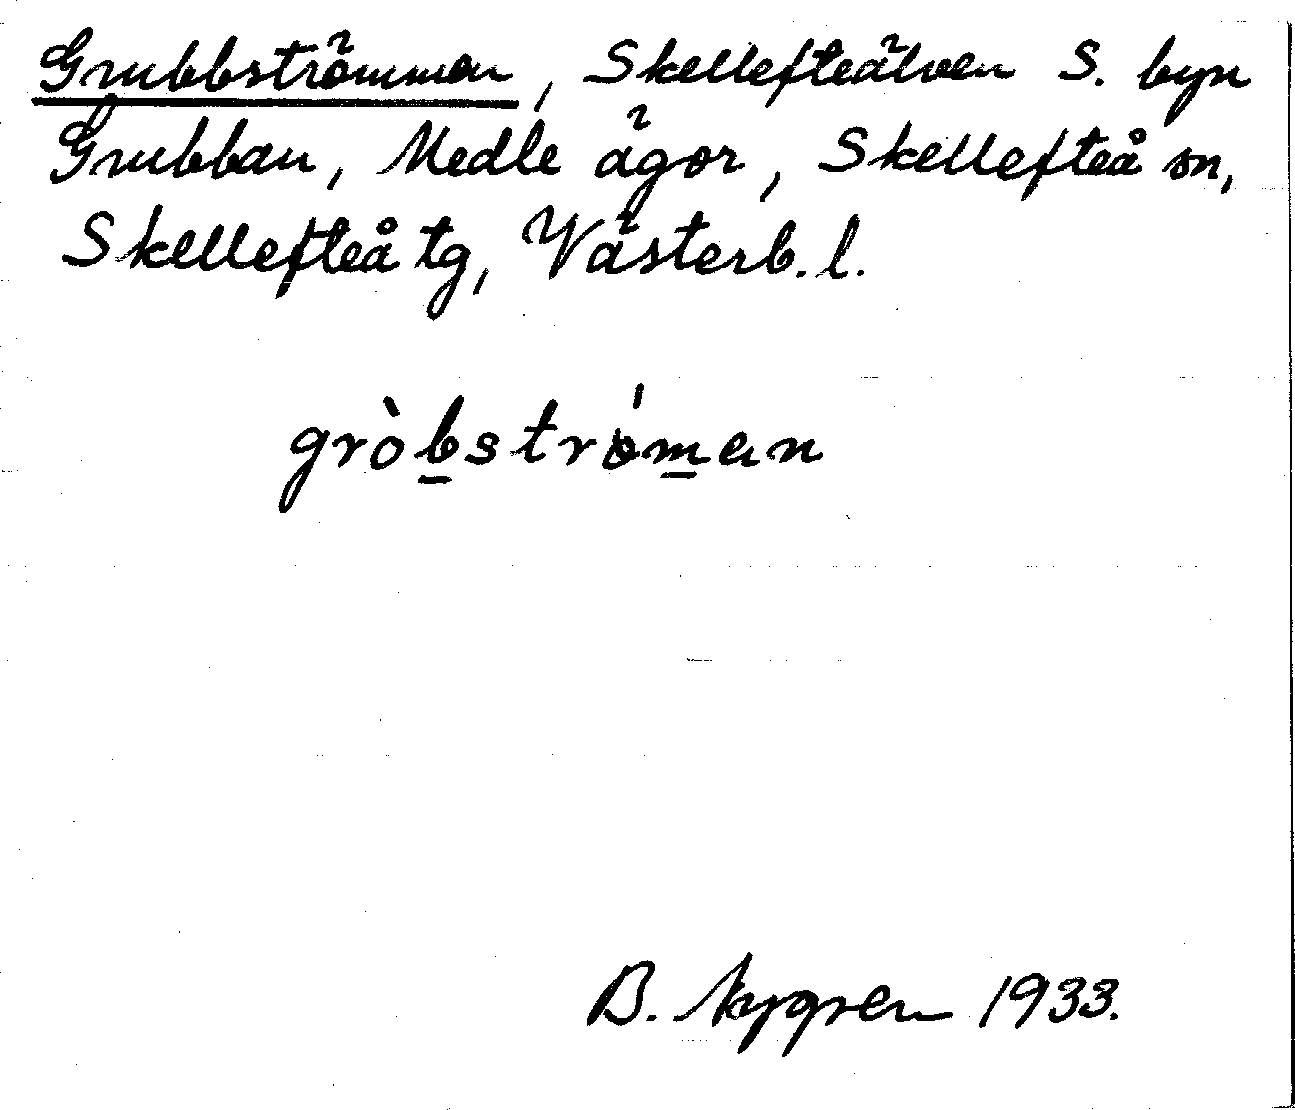 Grubbströmmen, Skellefteälven S. byn
Grubban, Medle ägor, Skellefteå sn,
Skellefteå tg, Västerb. l.
gròbstrǿman
B. Nygren 1933.